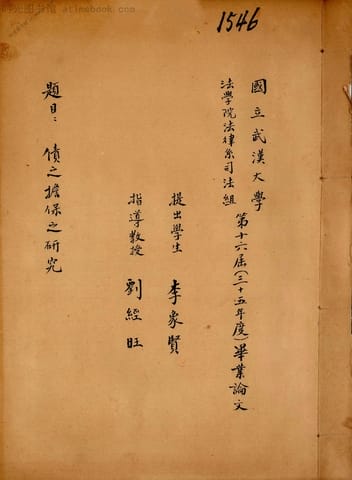 1546
國立武漢大學 第十六屆(三十五年度)畢業論文
法學院法律系司法組
提出學生 李家賢
指導教授 劉經旺
題目：債之擔保之研究